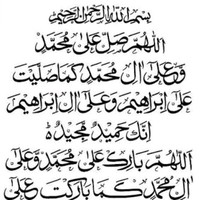 بسم الله الرحمن الرحيم
اللهم صل على محمد
وعلى ال محمد كما صليت
على ابراهيم وعلى ال ابراهيم
انك حميد مجيد
اللهم بارك على محمد وعلى
ال محمد كما باركت على